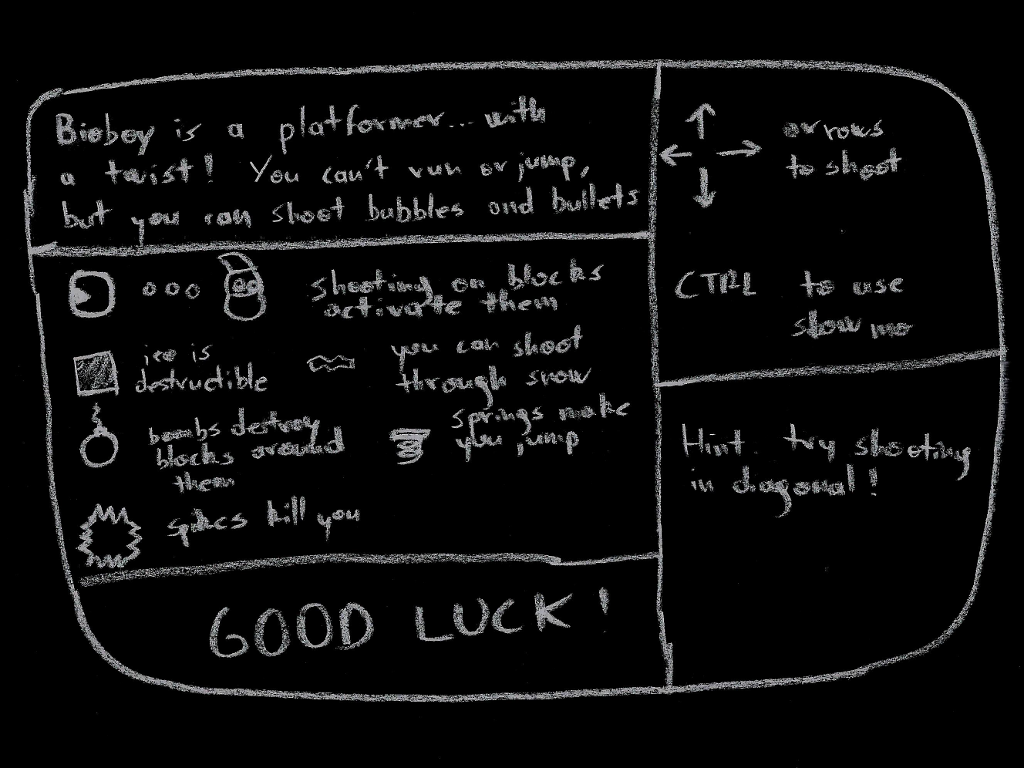 Bioboy is a platformer... with
a twist! You can't run or jump,
but you can shoot bubbles and bullets
shooting on blocks
activate them
ice is
destructible
you can shoot
through snow
bombs destroy
blocks around
them
springs make
you jump
spikes kill you
GOOD LUCK!
arrows
to shoot
CTRL to use
slow mo
Hint. try shooting
in diagonal!